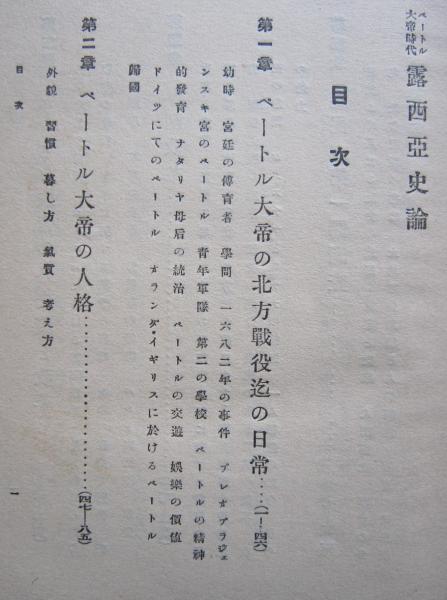 ペートル大帝時代
露西亞史論
目次
第一章 ペートル大帝の北方戰役迄の日常‥‥(一—四六)
幼時 宮廷の傅育者 學問 一六八二年の事件 プレオブラジェ
ンスキ宮のペートル 靑年軍隊 第二の學校 ペートルの精神
的發育 ナタリヤ母后の統治 ペートルの交遊 娛樂の價値
ドイツにてのペートル オランダ・イギリスに於けるペートル
歸國
第二章 ペートル大帝の人格‥‥‥‥‥‥‥‥(四七—八五)
外貌 習慣 暮し方 氣質 考え方
目次
一